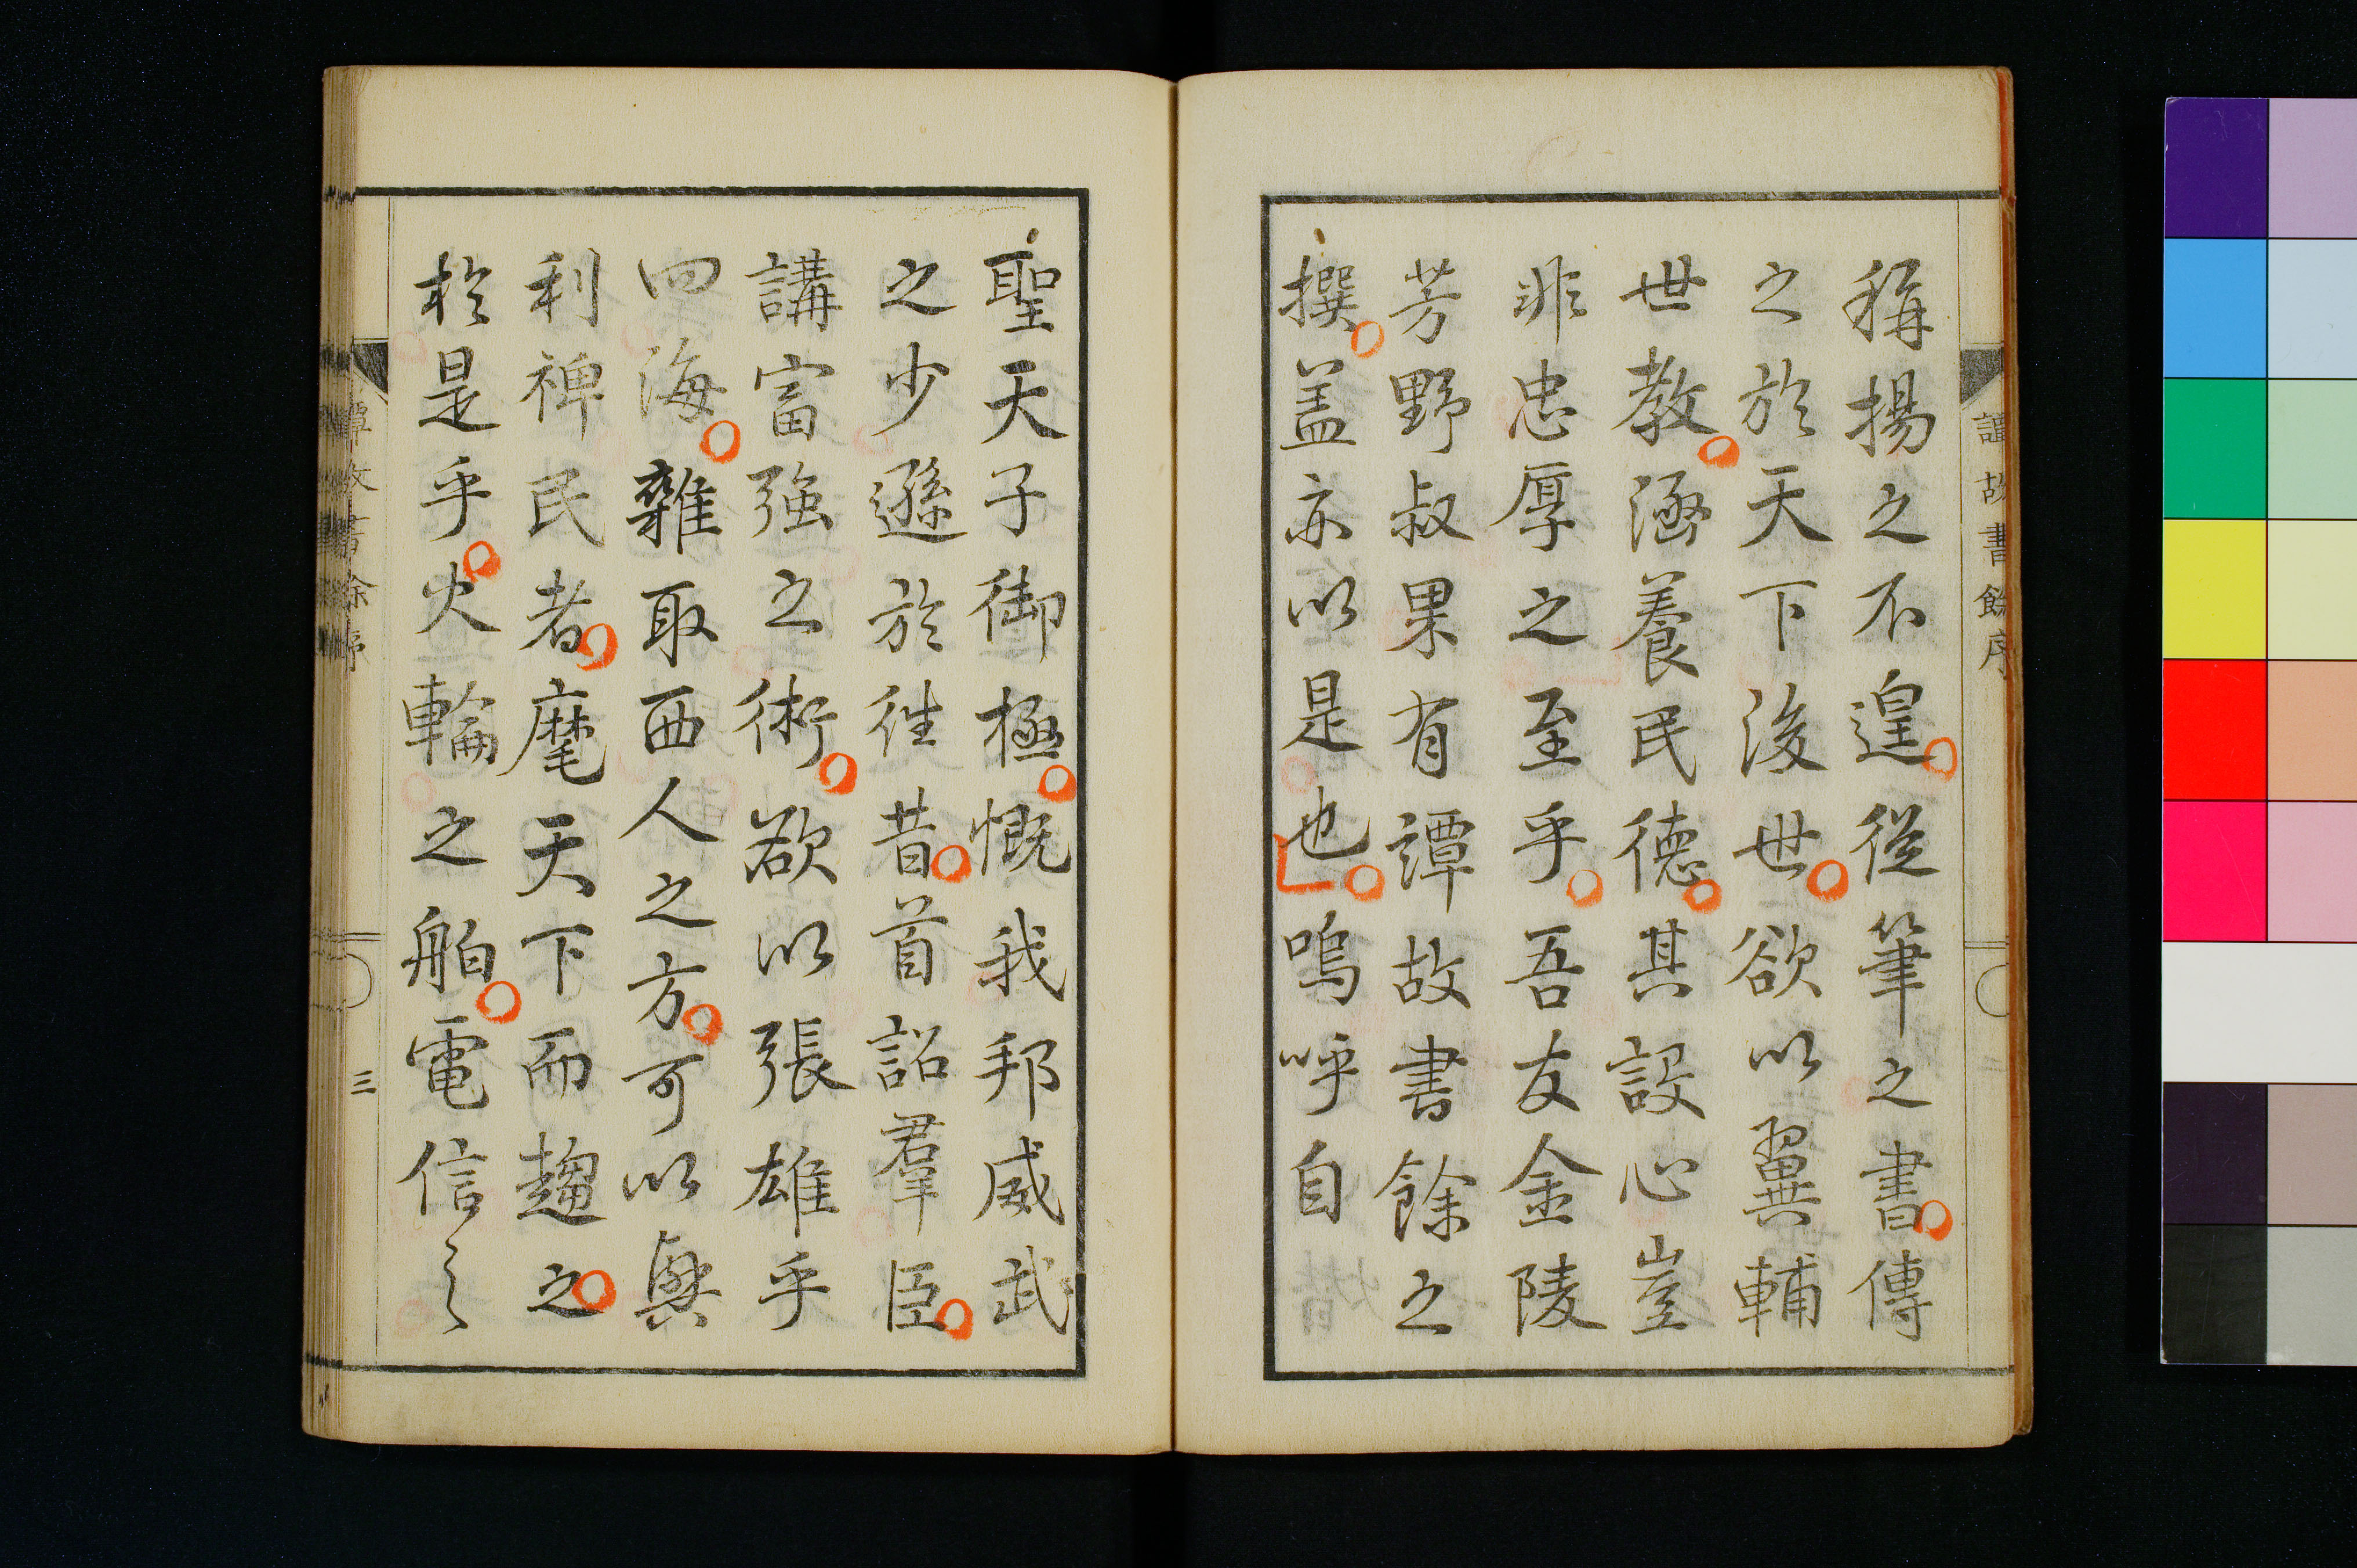 稱揚之不遑從筆之書傳
之於天下後世欲以翼輔
世教涵養民德其設心豈
非忠厚之至乎吾友金陵
芳野叔果有譚故書餘之
撰盖亦以是也嗚呼自
譚故書餘序
聖天子御極慨我邦威武
之少遜於往昔首詔羣臣
講富強之術欲以張雄乎
四海雜取西人之方可以興
利裨民者麾天下而趨之
於是乎火輪之舶電信之
譚故書餘序
三